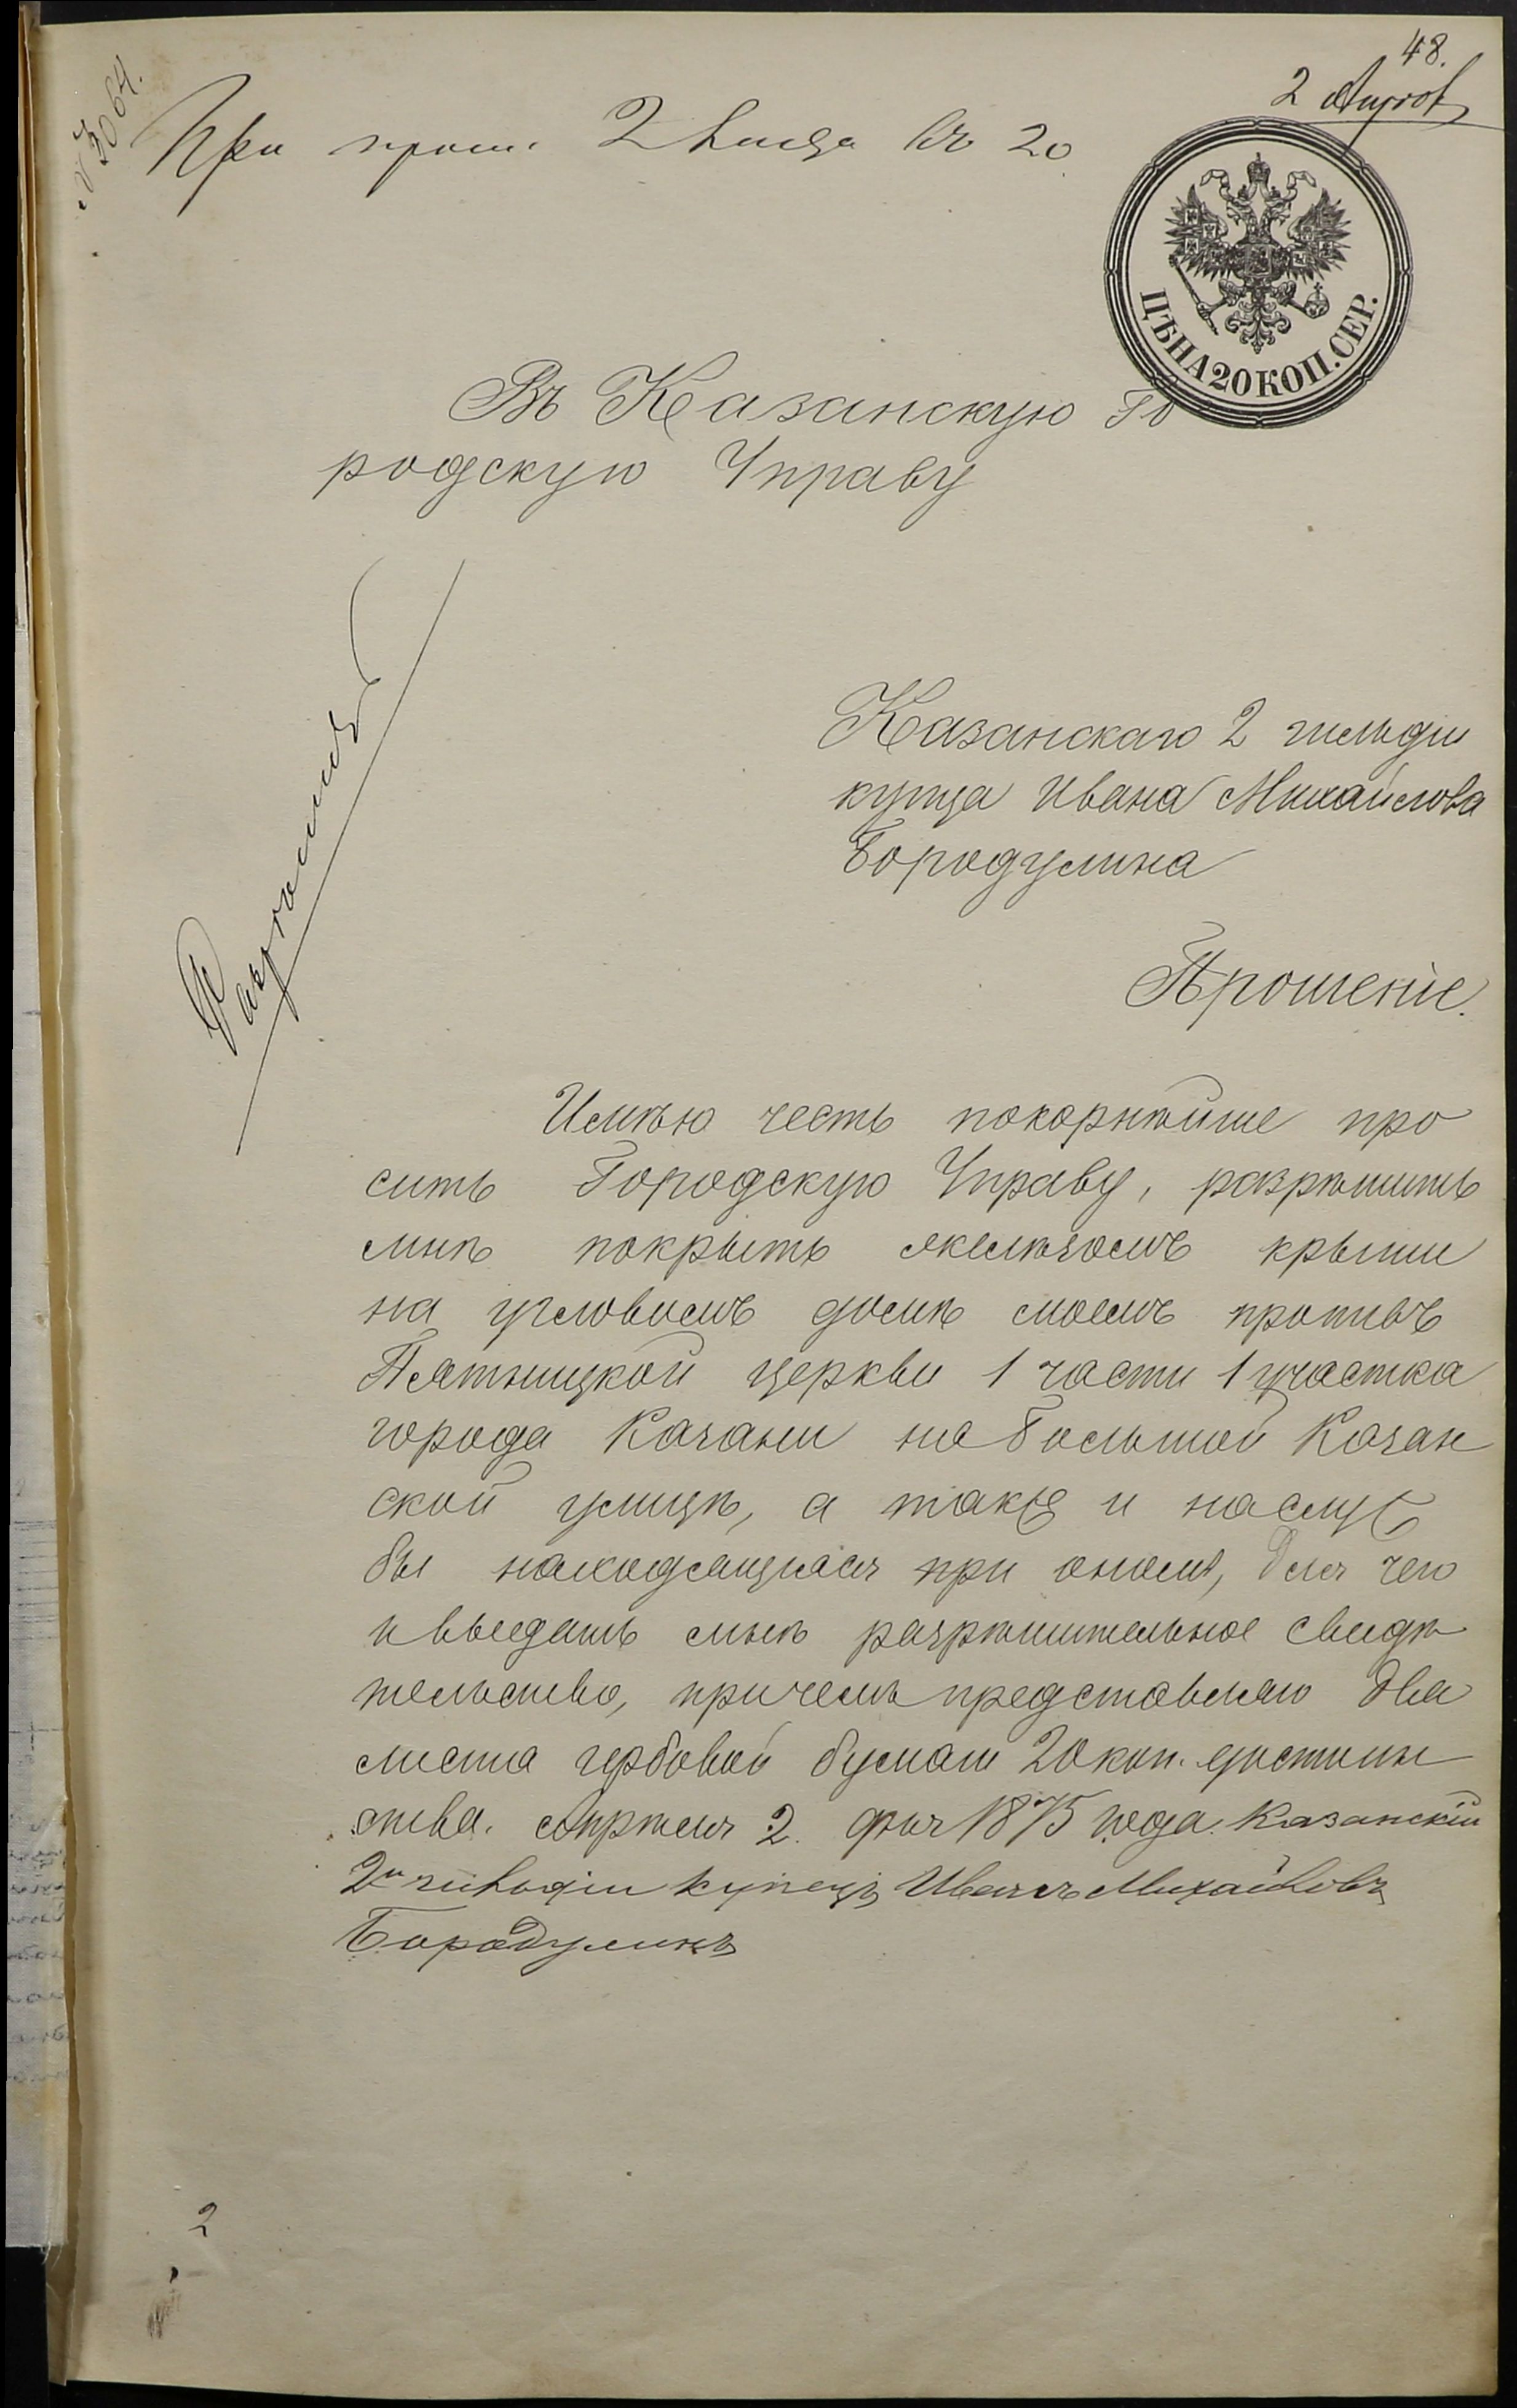 48.
2 Апрѣля
№ 3064.
При прош. 2 листа въ 20
ЦѢНА 20 КОП. СЕР.
Въ Казанскую Го
родскую Управу
Казанскаго 2 гильдіи
купца Ивана Михайлова
Бородулина
Прошеніе.
Имѣю честь покорнѣйше про
сить Городскую Управу, разрѣшить
мнѣ покрыть желѣзомъ крыши
на угловомъ домѣ моемъ противъ
Пятницкой церкви 1 части 1 участка
города Казани на Большой Казан
ской улицѣ, а также и на служ
бы находящіяся при ономъ, для чего
и выдать мнѣ разрѣшительное свидѣ
тельство, причемъ представляю два
листа гербовой бумаги 20 коп. достоин
ства. Апрѣля 2 дня 1875 года. Казанскій
2й гильдіи купецъ Иванъ Михайловъ
Бородулинъ
2